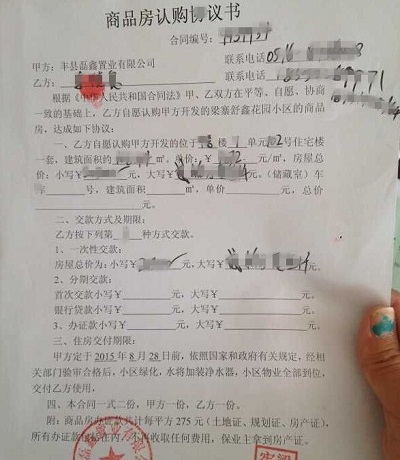 商品房认购协议书
合同编号:
甲方:丰县磊鑫置业有限公司 联系电话05,16
乙方: 联系电话
根据《中华人民共和国合同法》甲、乙双方在平等、自愿、协商
一致的基础上,乙方自愿认购甲方开发的梁寨舒鑫花园小区的商品
房,达成如下协议:
一、乙方自愿认购甲方开发的位于 楼 单元 2号住宅楼
一套,建筑面积约 ㎡,单价:¥ 元/㎡,房屋总
价:小写¥ 元,大写¥ 元。(储藏室)车
库 号,建筑面积 ㎡,单价 元,总价
元。
二、交款方式及期限:
乙方按下列第 种方式交款。
1、一次性交款:
房屋总价为:小写¥ 元,大写¥ 元。
2、分期交款:
首次交款小写¥ 元,大写¥ 元
银行贷款小写¥ 元,大写¥ 元
3、办证款小写¥ 元,大写¥ 元
三、住房交付期限:
甲方定于2015年8月28日前,依照国家和政府有关规定,经相
关部门验审合格后,小区绿化,水将加装净水器,小区物业全部到位,
交付乙方使用,
四、本合同一式二份,甲方一份,乙方一份。
附:商品房办证款共计每平方275元(土地证、规划证、房产证),
所有办证款包括在内,不再收取任何费用,保业主拿到房产证。